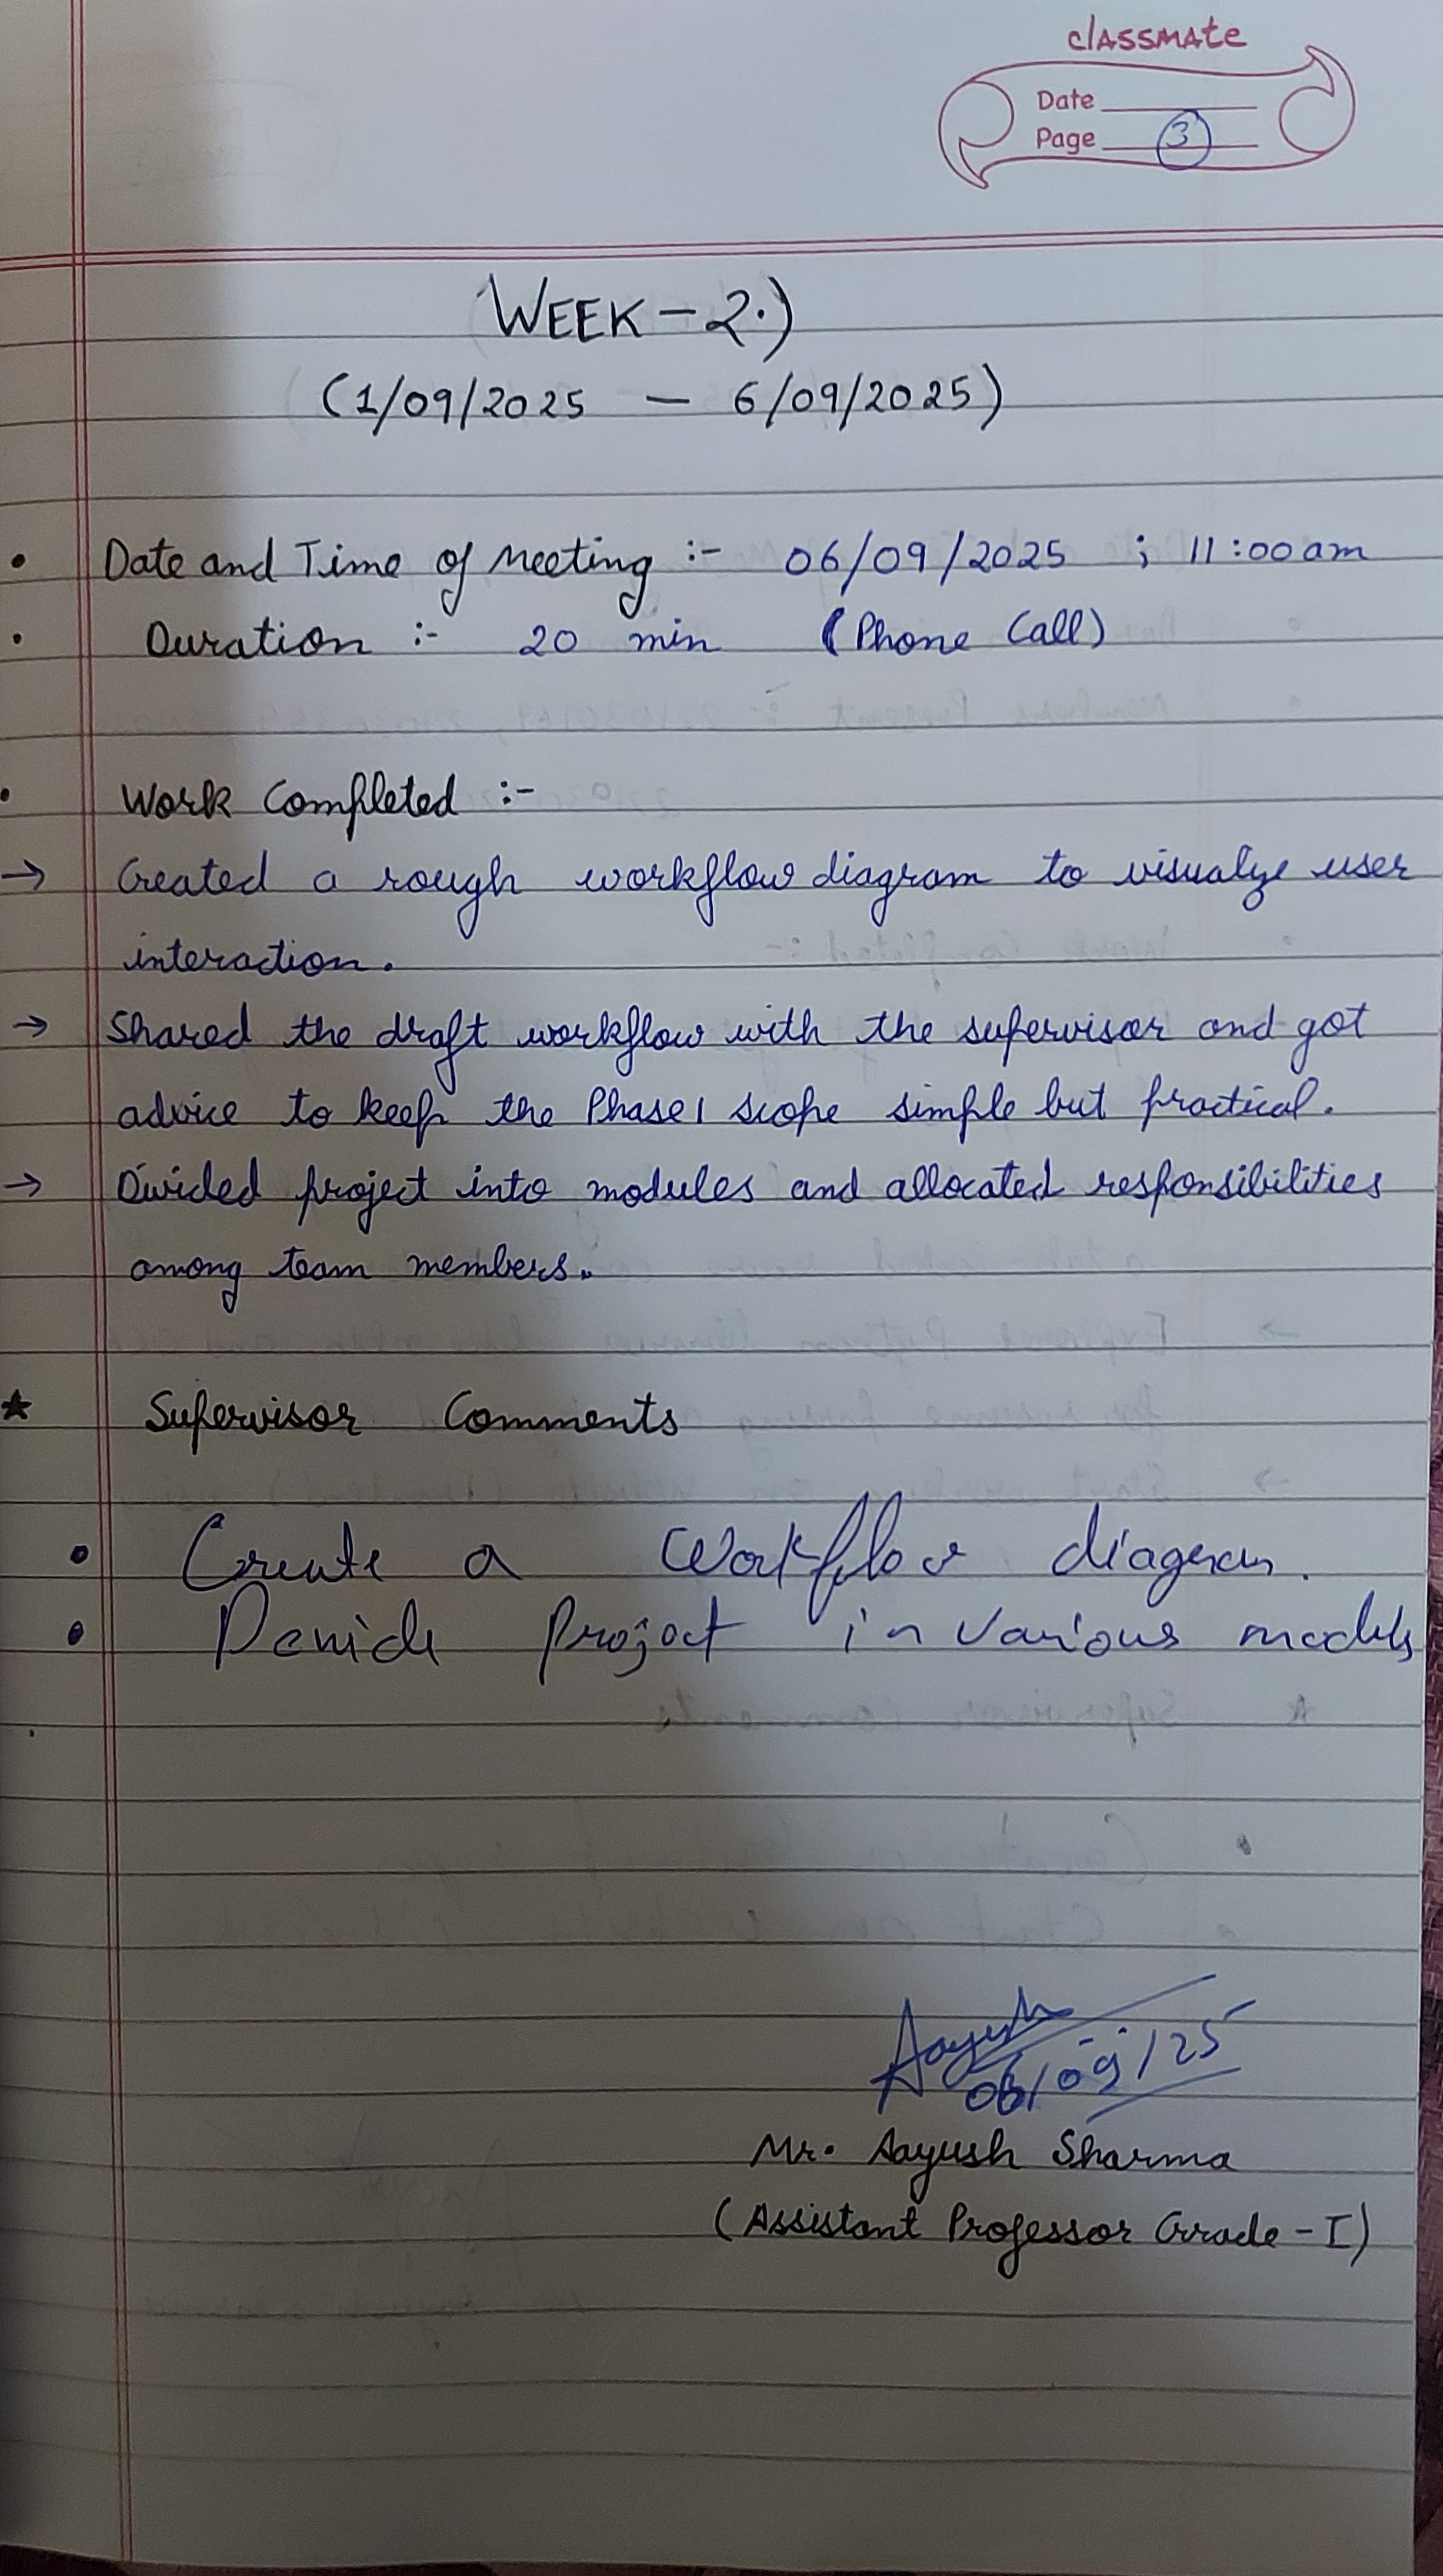 classmate
Date
Page 3
WEEK - 2.)
(1/09/2025 — 6/09/2025)
• Date and Time of Meeting :- 06/09/2025 ; 11:00 am
• Duration :- 20 min (Phone Call)
• Work Completed :-
→ Created a rough workflow diagram to visualze user
interaction.
→ Shared the draft workflow with the supervisor and got
advice to keep the Phase 1 scope simple but practical.
→ Divided project into modules and allocated responsibilities
among team members.
★ Supervisor Comments
• Create a Workflow diagram.
• Project in various
Aayush
06/09/25
Mr. Aayush Sharma
(Assistant Professor Grade - I)